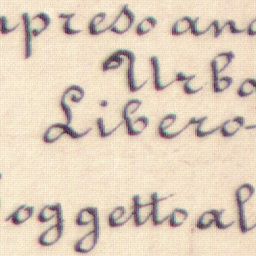 mpreso anc
Urbo
Libero-
oggetto al